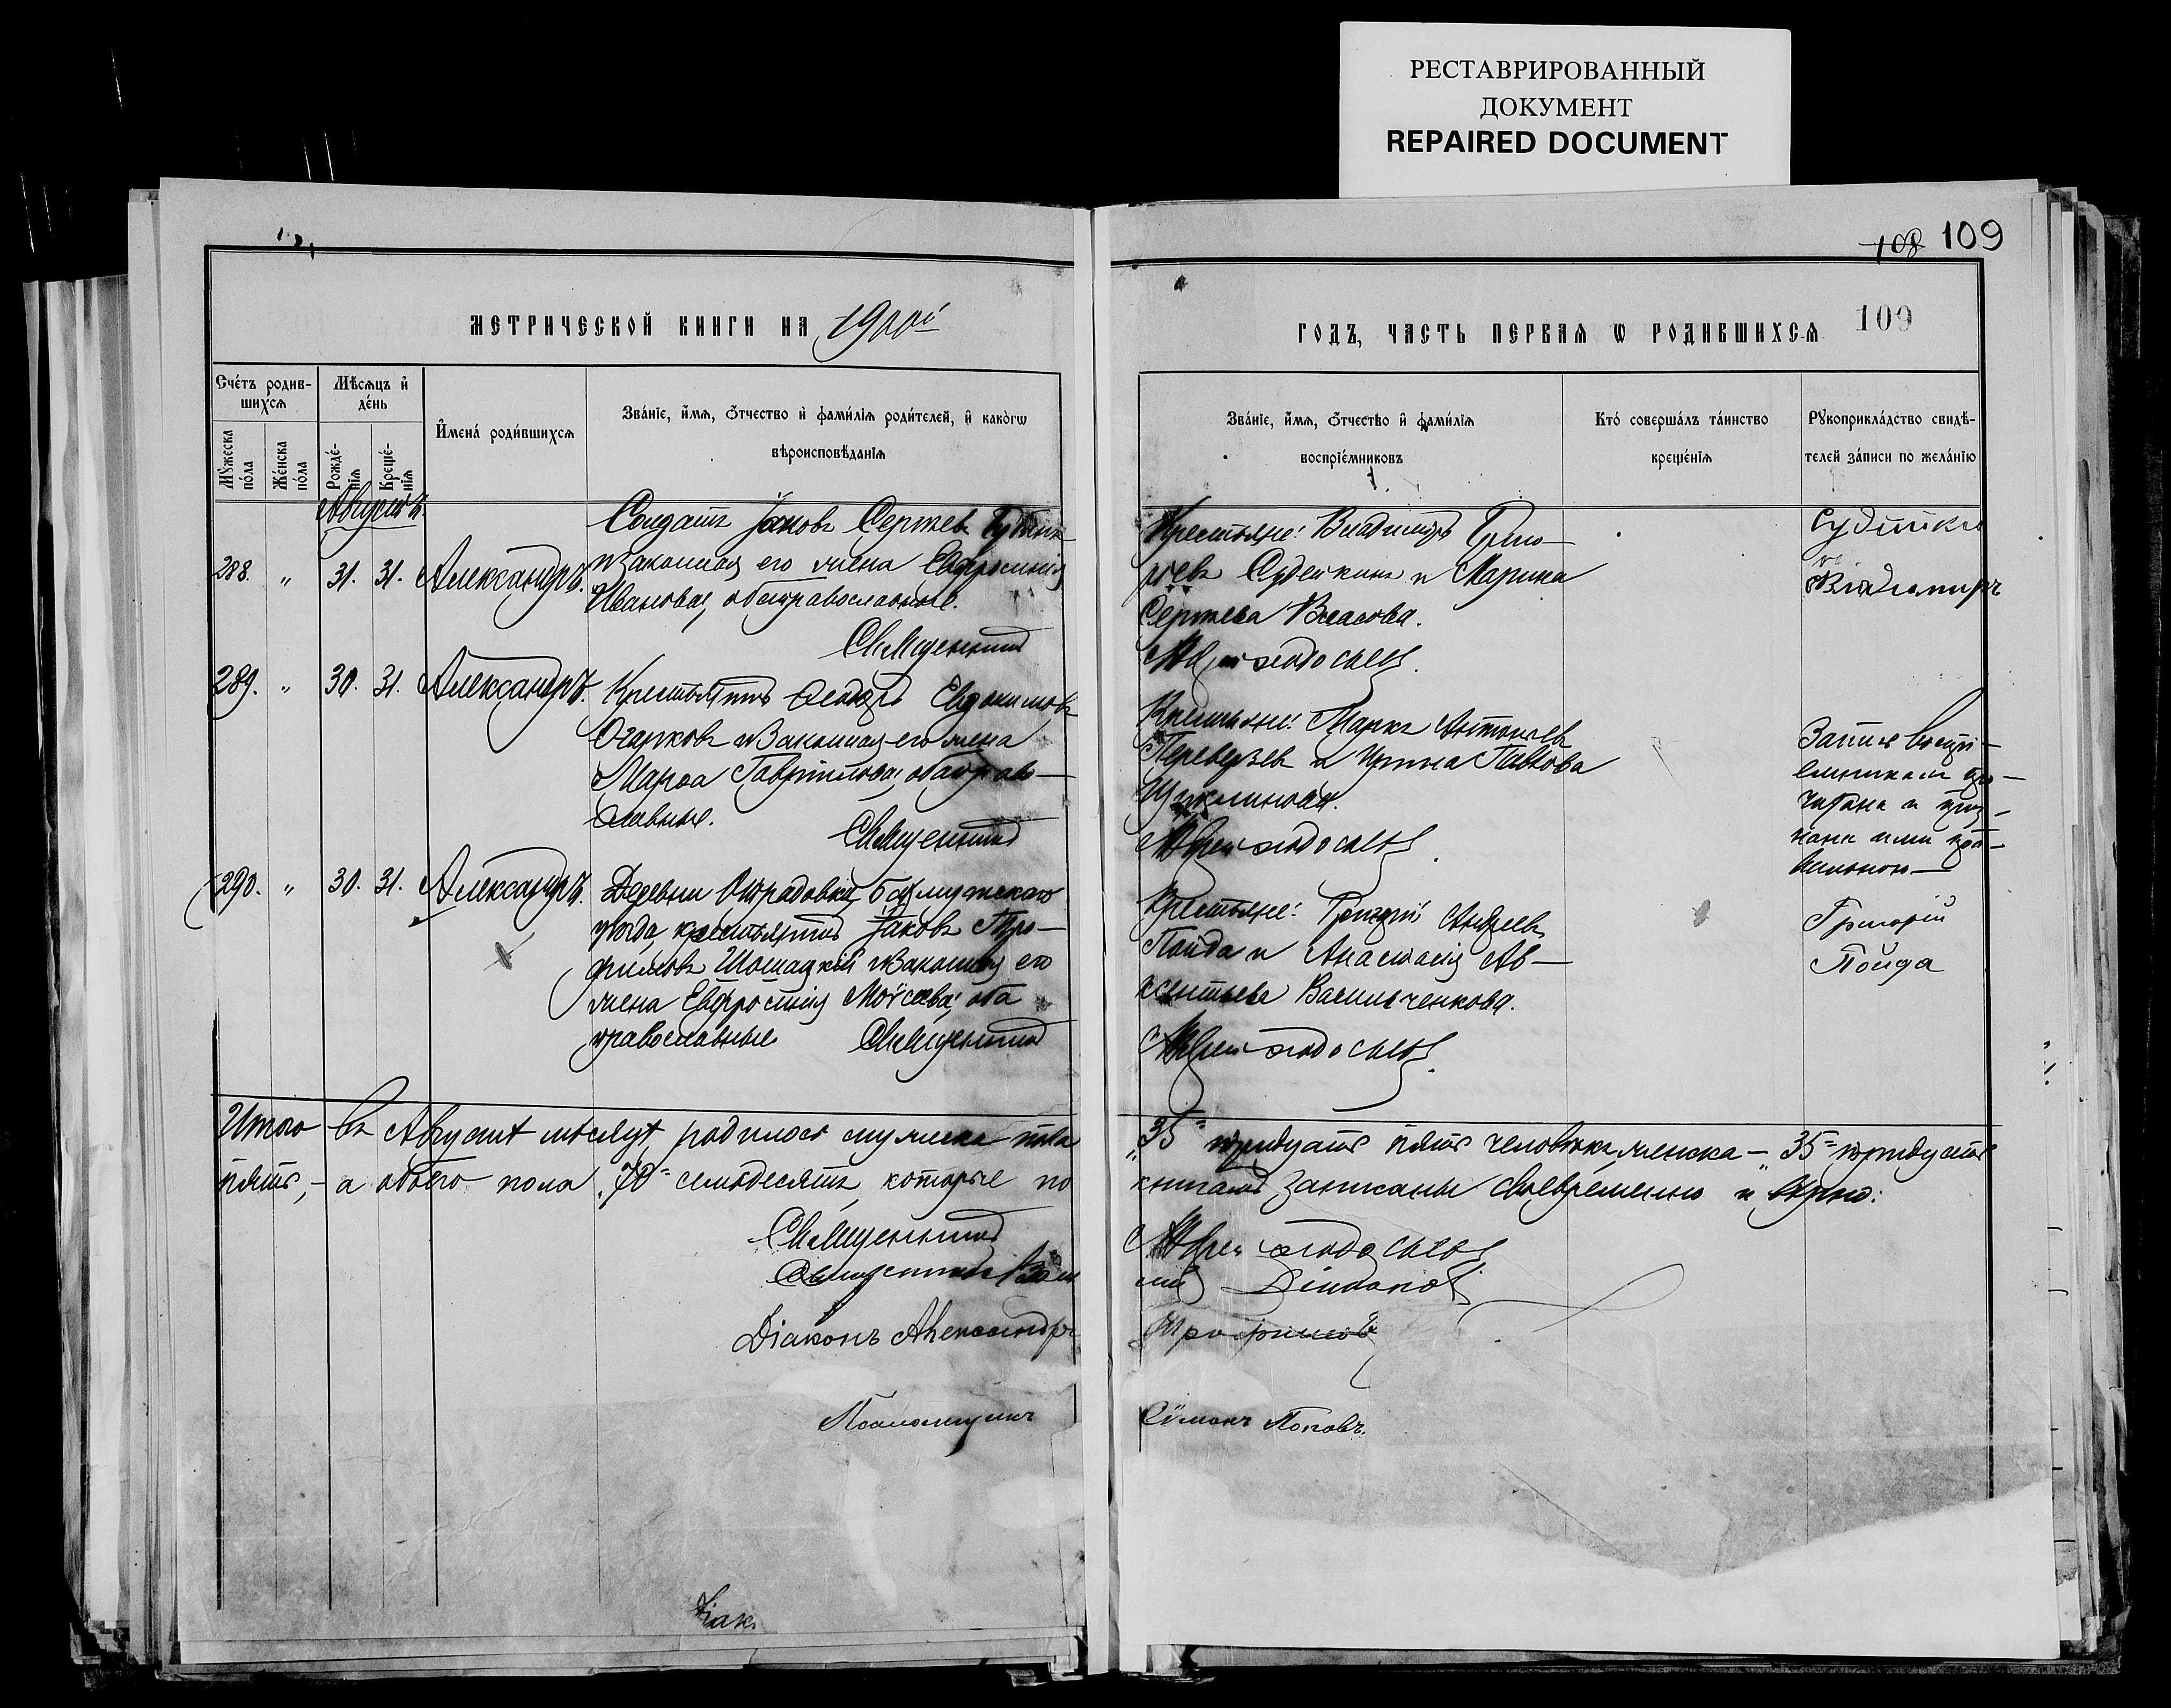 РЕСТАВРИРОВАННЫЙ
ДОКУМЕНТ
REPAIRED DOCUMENT
108 109
МЕТРИЧЕСКОЙ КНИГИ НА 1900й
ГОДЪ, ЧАСТЬ ПЕРВАЯ Ѡ РОДИВШИХСЯ 109
Счетъ родив-
шихся
Мужеска пола
Женска пола
Мѣсяцъ и
день
Рожде-
нія
Креще-
нія
Имена родившихся
Званіе, имя, отчество и фамилія родителей, и какогѡ
вѣроисповѣданія
Званіе, имя, отчество и фамилія
воспріемниковъ
Кто совершалъ таинство
крещенія
Рукоприкладство свидѣ-
телей записи по желанію
Августъ.
288. " 31. 31. Александръ.
Солдатъ Іаковъ Сергѣевъ
и законная его жена Евфросинія
Ивановна, оба православные.
Священникъ
Крестьяне: Владиміръ Григо-
рьевъ Судейкинъ и Марина
Сергѣева Власова.
Судийки
Владимиръ
289. " 30. 31. Александръ.
Крестьянинъ Ѳеодоръ Евдокимовъ
Огарковъ и законная его жена
Марѳа Гавріилова, оба право-
славные.
Священникъ
Крестьяне: Маркъ Антоньевъ
Переверзев и Ирина Павлова
Запись воспрі-
емникам про-
читана и приз-
нана ими пра-
вильною
290. " 30. 31. Александръ.
Деревни Отрадовки, Бахмутскаго
уѣзда, крестьянинъ Іаковъ Тро-
фимовъ и законная его
жена Евфросинія Моѵсеева, оба
православные. Священникъ
Крестьяне: Григорій Андреевъ
Пойда и Анастасія Ав-
ксентьева Васильченкова.
Григорій
Пойда
Итого въ Августѣ мѣсяцѣ родилось мужеска пола „35" тридцать пять человѣкъ, женска — „35" тридцать
пять, — а обоего пола „70" семьдесятъ, которые по книгамъ записаны своевременно и вѣрно:
Священникъ
Священникъ
Діаконъ Александръ Трофимовъ
Псаломщикъ Сѵмонъ Поповъ.
Діак.